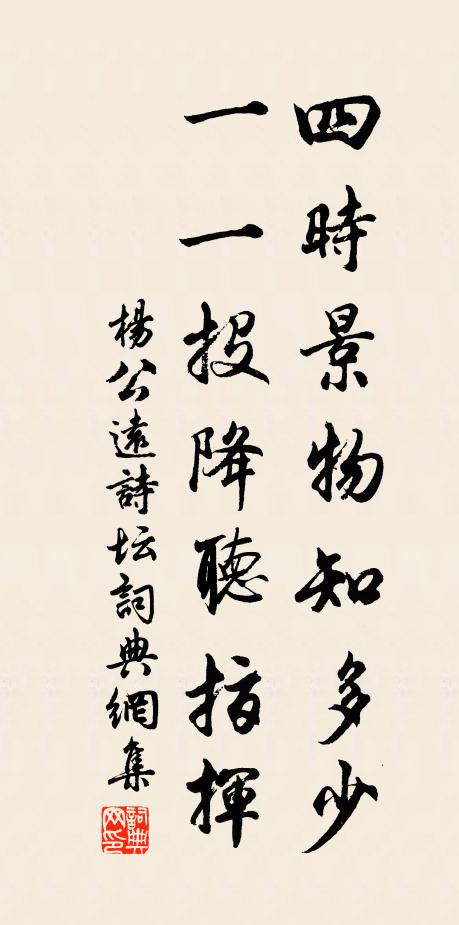 四時景物知多少
一一投降聽指揮
楊公遠詩坛詞典網集
詞典網印